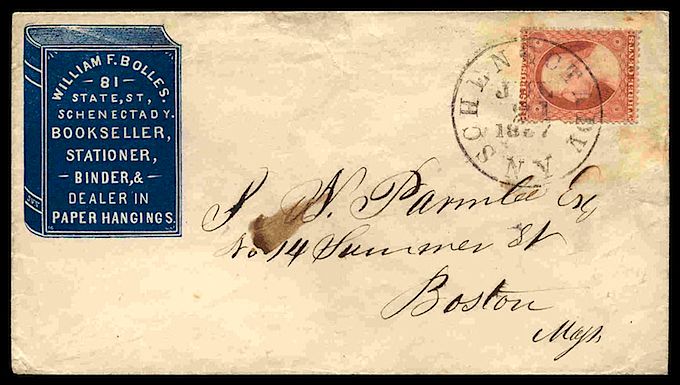 WILLIAM F. BOLLES.
81
STATE, ST,
SCHENECTADY.
BOOKSELLER,
STATIONER,
BINDER, &
DEALER IN
PAPER HANGINGS.
SCHENECTADY
1857
NY
Parmlee Esq
No 14 Summer St
Boston
Mass